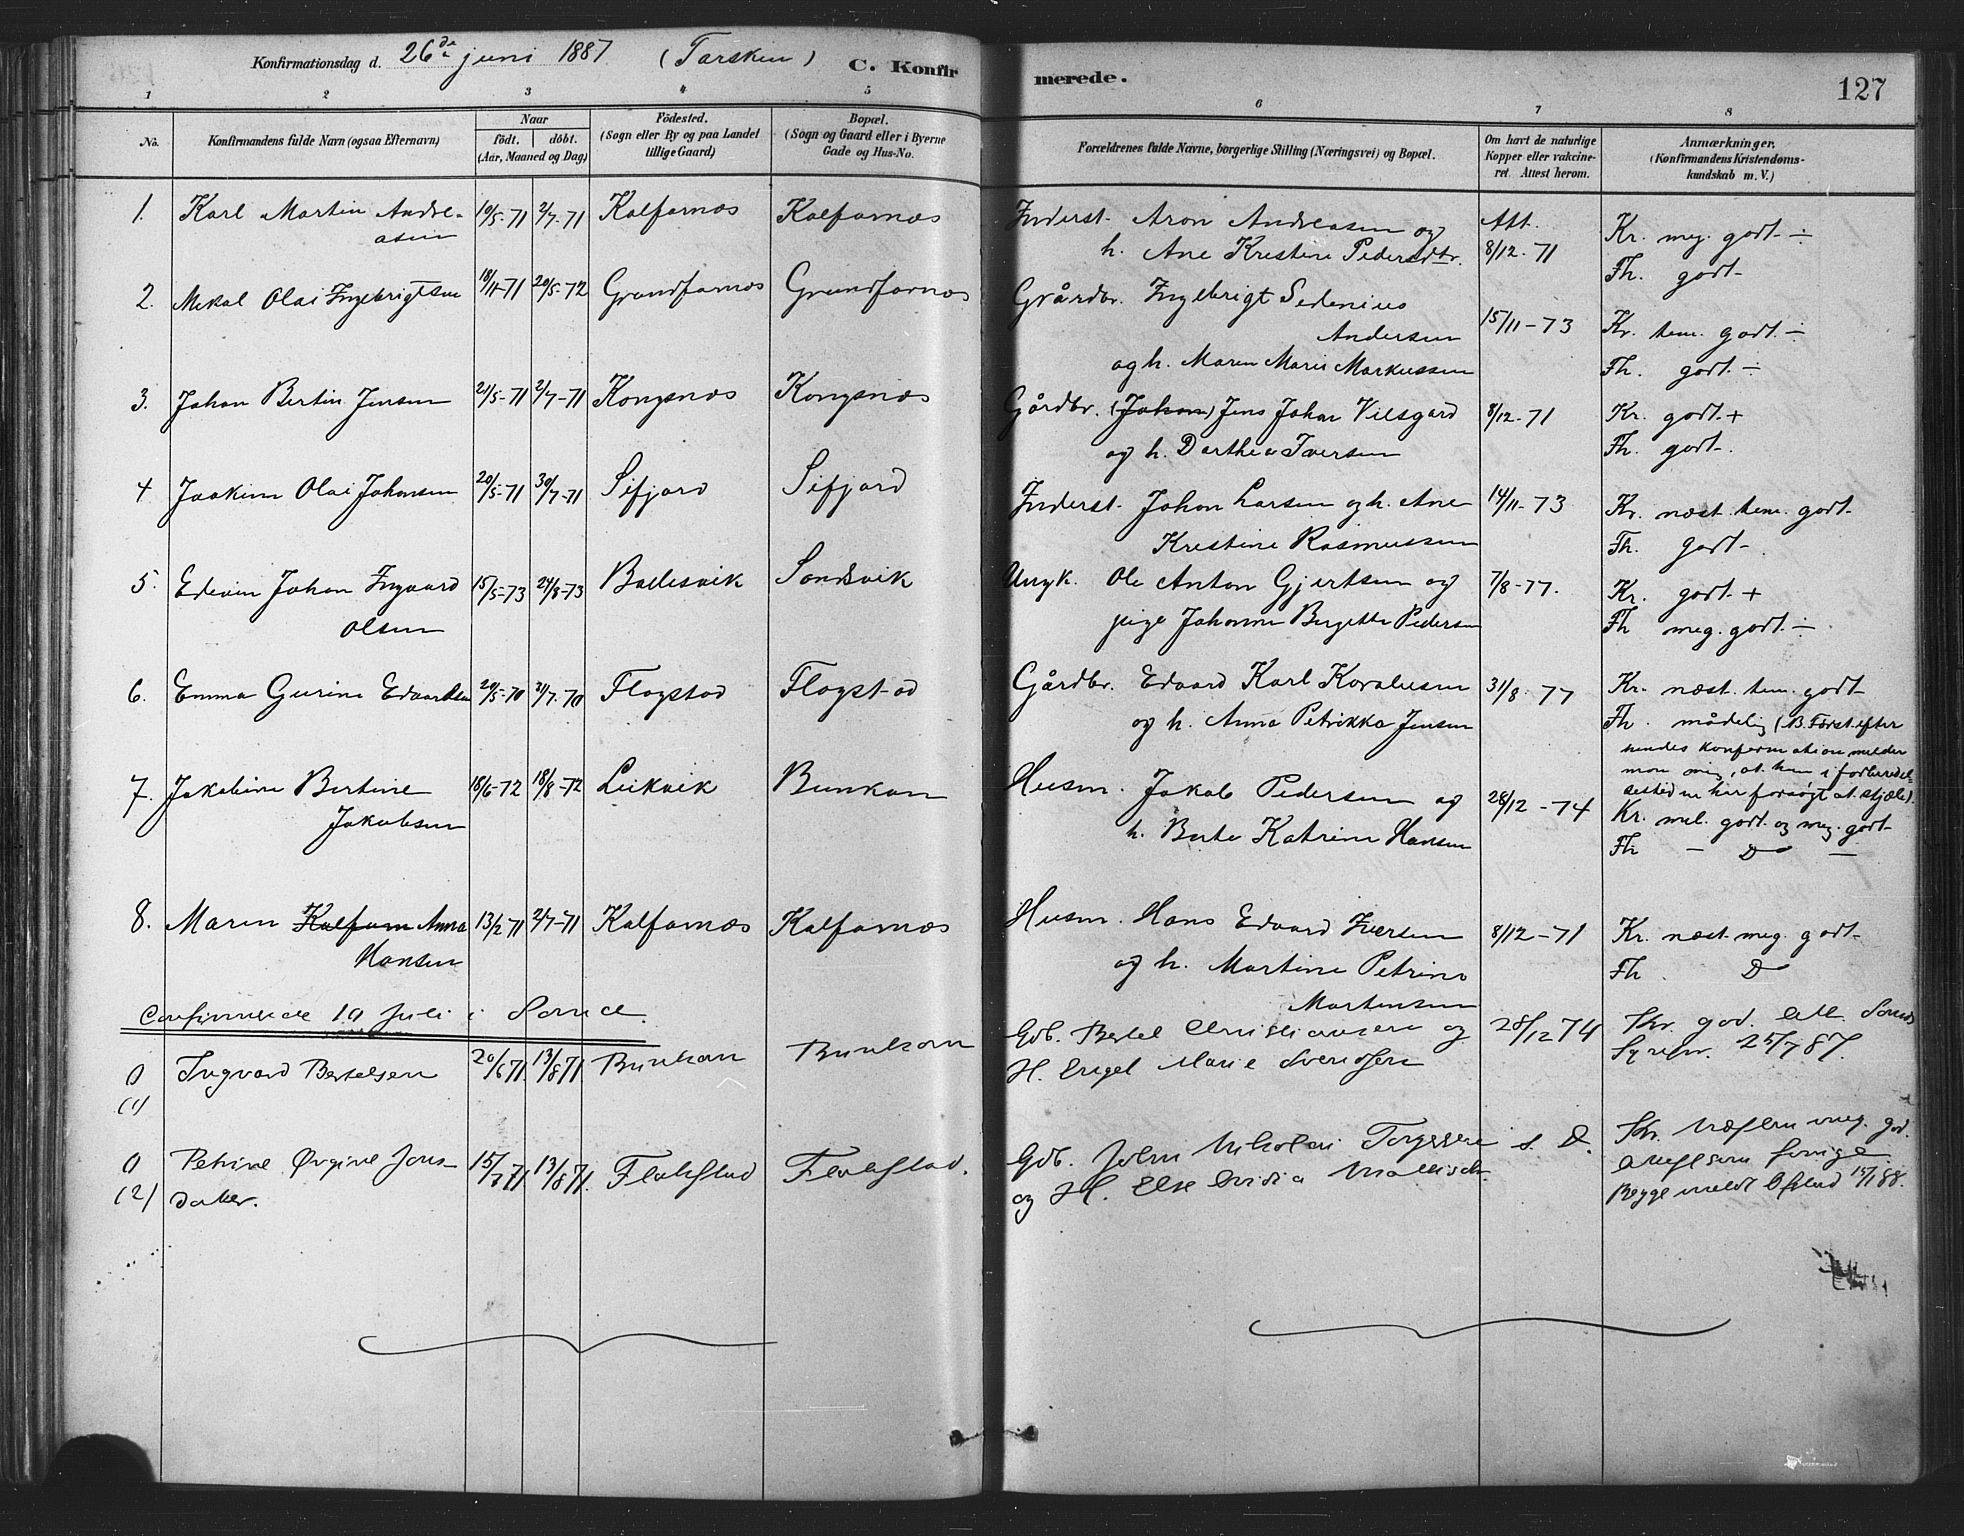 Konfirmationsdag d. 26de juni 1887 (Torsken) C. Konfirmerede. 127
1 2 3 4 5 6 7 8
No. Konfirmandens fulde Navn (ogsaa Efternavn) Naar født. døbt. (Aar, Maaned og Dag) Fødested. (Sogn eller By og paa Landet tillige Gaard) Bopæl. (Sogn og Gaard eller i Byerne Gade og Hus-No. Forældrenes fulde Navne, borgerlige Stilling (Næringsvei) og Bopæl. Om havt de naturlige Kopper eller vakcineret. Attest herom. Anmærkninger. (Konfirmandens Kristendomskundskab m. V.)
1. Karl Martin Andre- 19/5-71 2/7-71 Kalfarnes Kalfarnes Inderst. Aron Andreasen og Att. Kr. meg. godt ÷
asen h. Ane Kristine Pedersdtr. 8/12-71 Fh. godt
2. Mekal Olai Ingebrigtsen 18/11-71 20/5-72 Grundfarnes Grundfarnes Gårdbr. Ingebrigt Sedenius
Andersen 15/11-73 Kr. tem. godt ÷
og h. Maren Marie Markussen Fh. godt ÷
3. Johan Bertin Jensen 21/5-71 2/7-71 Kongsnes Kongsnes Gårdbr. (Johan) Jens Johan Vilsgård 8/12-71 Kr. godt +
og h. Dorthea Iversen Fh. godt.
4 Joakim Olai Johansen 20/5-71 30/7-71 Sifjord Sifjord Inderst. Johan Larsen og h. Ane 14/11-73 Kr. næst. tem. godt
Kristine Rasmussen Fh. godt
5. Edevin Johan Ingvard 15/5-73 24/8-73 Ballesvik Sandsvik Ungk. Ole Anton Gjertsen og 7/8-77. Kr. godt +
Olsen pige Johanna Bergitte Pedersen Fh meg. godt ÷
6. Emma Gurine Edvardsen 29/5-70 2/7-70 Flagstad Flagstad Gårdbr. Edvard Karl Koraliusen 31/8-77 Kr. næst. tem. godt
og h. Anna Petrikka Jensen Fh. mådelig (B. Først efter
hendes konfirmation melder
man mig, at hun i forberedel-
sestiden har forsøgt at stjæle).
7. Jakobine Bertine 18/6-72 18/8-72 Leikvik Bunkan Husm. Jakob Pedersen og 28/12-74 Kr. mel. godt og meg. godt
Jakobsen h. Berte Katrine Hansen Fh — D —
8. Maren Kalfarn Anna 13/2 71 2/7-71 Kalfarnes Kalfarnes Husm. Hans Edvard Iversen 8/12-71 Kr. næst. meg. godt
Hansen og h. Martine Petrine Fh. D
Martensen
Confirmerede 10 Juli i Sand.
0 Ingvard Bertelsen 20/6 71. 13/8 71 Bunkan Bunkan Gdb. Bertel Christiansen og 28/12 74 Kr. god.
(1) H. Engel Marie 25/7 87.
0 Petrine Jons- 15/7 71 13/8 71. Flakstad Flakstad. Gdb. John Nikolai s. D. Kr. Næsten meg. god.
(2) dater. og H. Else 15/1 88.